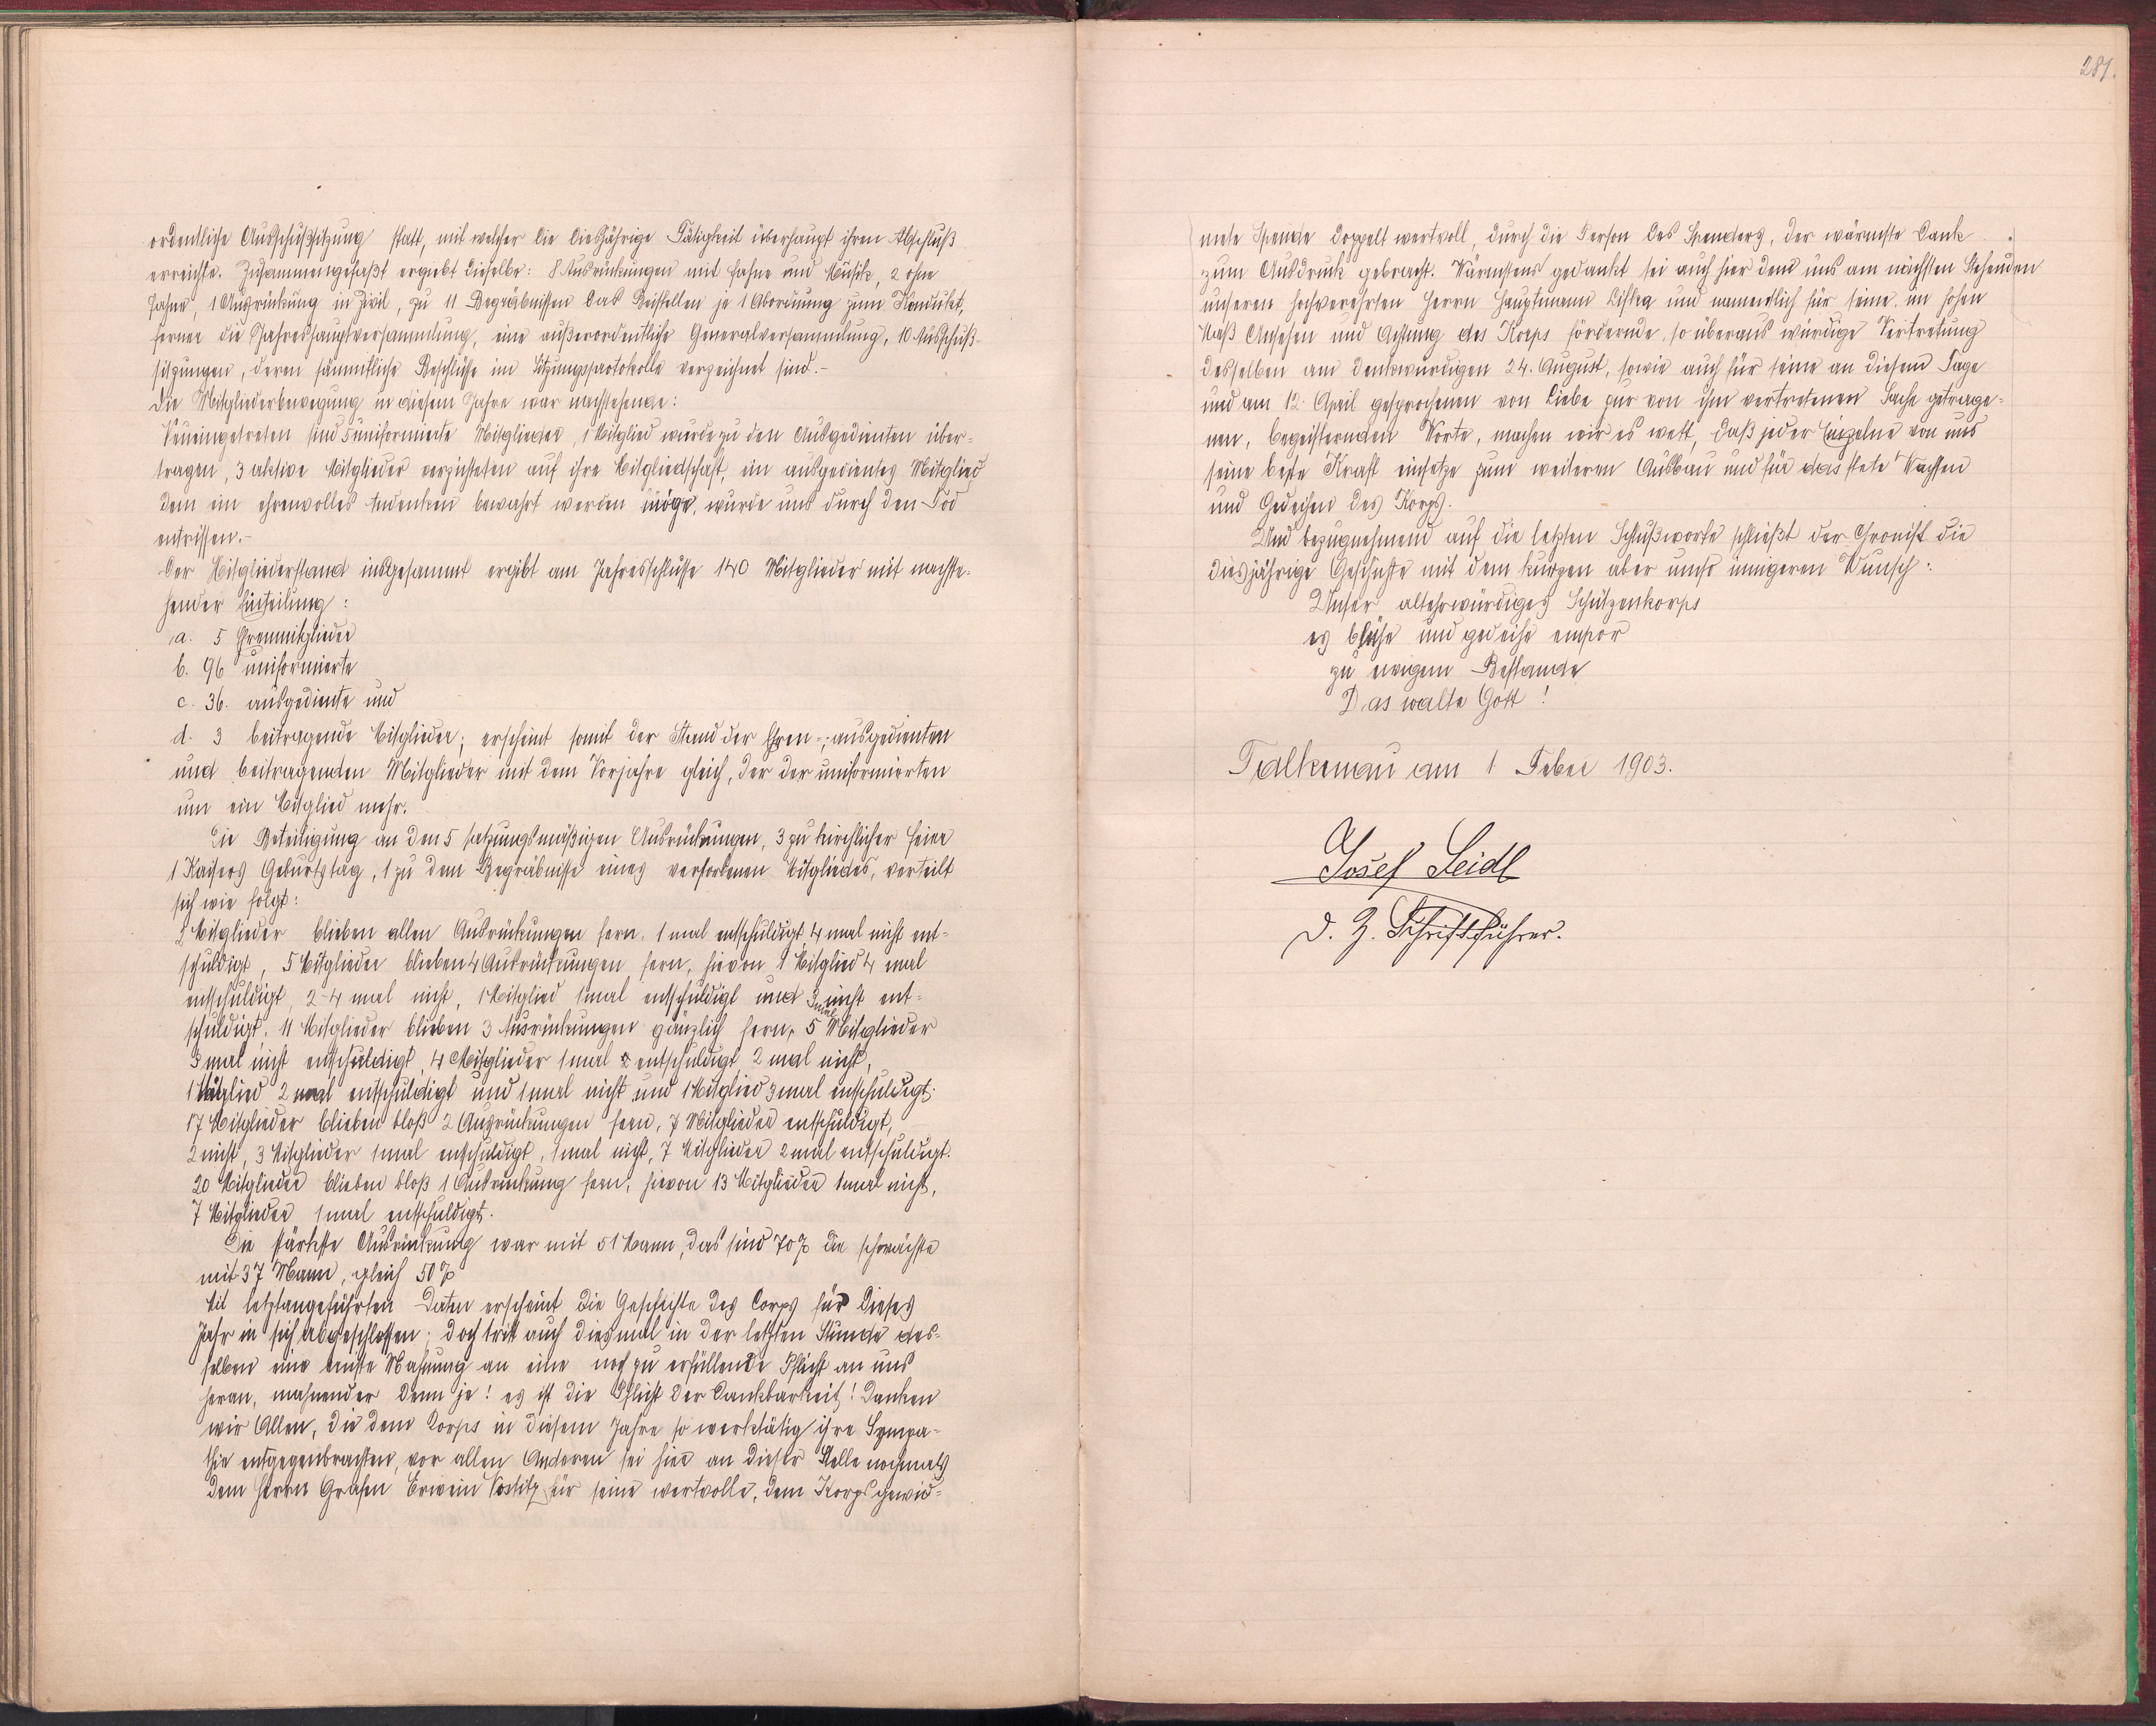 ordentliche Ausschußsitzung statt, mit welcher die diesjährige Tätigkeit überhaupt ihren Abschluß
erreichte. Zusammengefaßt ergiebt dieselbe: 8 Ausrückungen mit Fahne und Musik, 2 ohne
Fahne, 1 Ausrückung in Zivil, zu 11 Begräbnissen das Beistellen je 1 Abordnung zum Kondukt,
ferner die Jahreshauptversammlung, eine außerordentliche Generalversammlung, 10 Ausschuß-
sitzungen, deren sämmtliche Beschlüße im Sitzungsprotokolle verzeichnet sind.-
Die Mitgliederbewegung in diesem Jahre war nachstehende:
Neueingetreten sind 5 uniformierte Mitglieder, 1 Mitglied wurde zu den Ausgedienten über-
tragen, 3 aktive Mitglieder verzichteten auf ihre Mitgliedschaft, ein ausgedientes Mitglied
dem ein ehrenvolles Andenken bewahrt werden möge, wurde uns durch den Tod
entrissen.-
Der Mitgliederstand insgesammt ergibt am Jahresschlusse 140 Mitglieder mit nachste-
hender Einteilung:
a. 5 Ehrenmitglieder
b. 96 uniformierte
c. 36. ausgediente und
d. 3 beitragende Mitglieder; erscheint somit der Stand der Ehren-, ausgedienten
und beitragenden Mitglieder mit dem Vorjahre gleich, der der uniformierten
um ein Mitglied mehr.
Die Beteiligung an den 5 satzungsmäßigen Ausrückungen, 3 zu kirchlicher Feier
1 Kaisers Geburtstag, 1 zu dem Begräbnisse eines verstorbenen Mitgliedes, verteilt
sich wie folgt:
2 Mitglieder blieben allen Ausrückungen fern. 1 mal entschuldigt, 4 mal nicht ent-
schuldigt, 5 Mitglieder blieben 4 Ausrückungen fern, hievon 1 Mitglied 4 mal
entschuldigt, 2 4 mal nicht, 1 Mitglied 1mal entschuldigt und 3 mal nicht ent-
schuldigt. 11 Mitglieder blieben 3 Ausrückungen gänzlich fern, 5 Mitglieder
3 mal nicht entschuldigt, 4 Mitglieder 1mal entschuldigt 2 mal nicht,
1 Mitglied 2 mal entschuldigt und 1mal nicht und 1 Mitglied 3 mal entschuldigt.
17 Mitglieder blieben bloß 2 Ausrückungen fern, 7 Mitglieder entschuldigt,
2 nicht, 3 Mitglieder 1mal entschuldigt, 1mal nicht, 7 Mitglieder 2 mal entschuldigt.
20 Mitglieder blieben bloß 1 Ausrückung fern, hievon 13 Mitglieder 1mal nicht,
7 Mitglieder 1mal entschuldigt.
Die stärkste Ausrückung war mit 51 Mann, das sind 70% die schwächste
mit 37 Mann, gleich 50%
Mit letztangeführten Daten erscheint die Geschichte des Corps für dieses
Jahr in sich abgeschlossen; doch tritt auch diesmal in der letzten Stunde des-
selben eine ernste Mahnung an eine noch zu erfüllende Pflicht an uns
heran, mahnender denn je! es ist die Pflicht der Dankbarkeit! Danken
wir Allen, die dem Korps in diesem Jahre so werktätig ihre Sympa-
thie entgegenbrachten, vor allen Anderen sei hier an dieser Stelle nochmals
dem Herrn Grafen Erwein Nostitz für seine wertvolle, dem Korps gewid-
281.
mete Spende doppelt wertvoll, durch die Person des Spenders, der wärmste Dank
zum Ausdruck gebracht. Wärmstens gedankt sei auch hier dem uns am nächsten Stehenden
unseren hochverehrten Herrn Hauptmann Lißka und namendlich für seine, im hohen
Maß Ansehen und Achtung des Korps fördernde, so überaus würdige Vertretung
desselben am denkwürdigen 24. August, sowie auch für seine an diesem Tage
und am 12. April gesprochenen von Liebe zur von ihm vertretenen Sache getrage-
nen, begeisternden Worte, machen wir es wett, daß jeder Einzelne von uns
seine beste Kraft einsetze zum weiteren Ausbau und für das stete Wachsen
und Gedeihen des Korps.
Und bezugnehmend auf die letzten Schlußworte schließt der Chronist die
diesjährige Geschichte mit dem kurzen aber umso innigeren Wunsch:
Unser altehrwürdiges Schützenkorps
es blühe und gedeihe empor
zu ewigem Bestande
Das walte Gott!
Falkenau am 1 Feber 1903.
Josef Seidl
d. Z. Schriftführer.